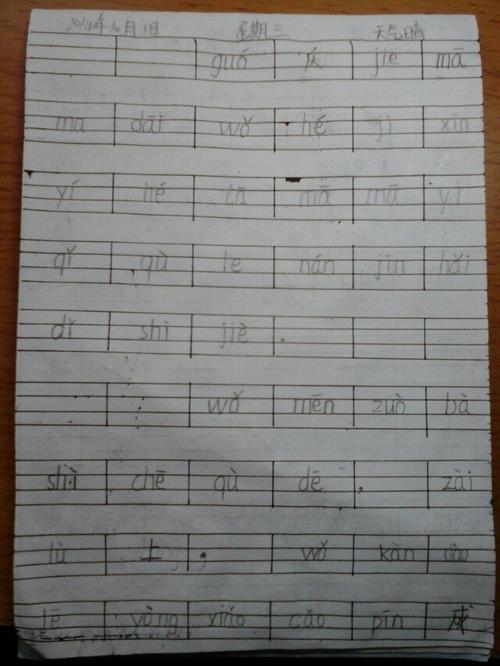 2014年10月1日 星期三 天气晴
guó 庆 jiē mā
ma dāi wǒ hé jì xīn
yí hé tā mā mā yì
qǐ qù le nán jīn hǎi
dǐ shì jiè .
wǒ mēn zuò bà
shì chē qù dē , zài
lù 上 , wǒ kàn dào
lē yòng xiǎo cǎo pīn 成